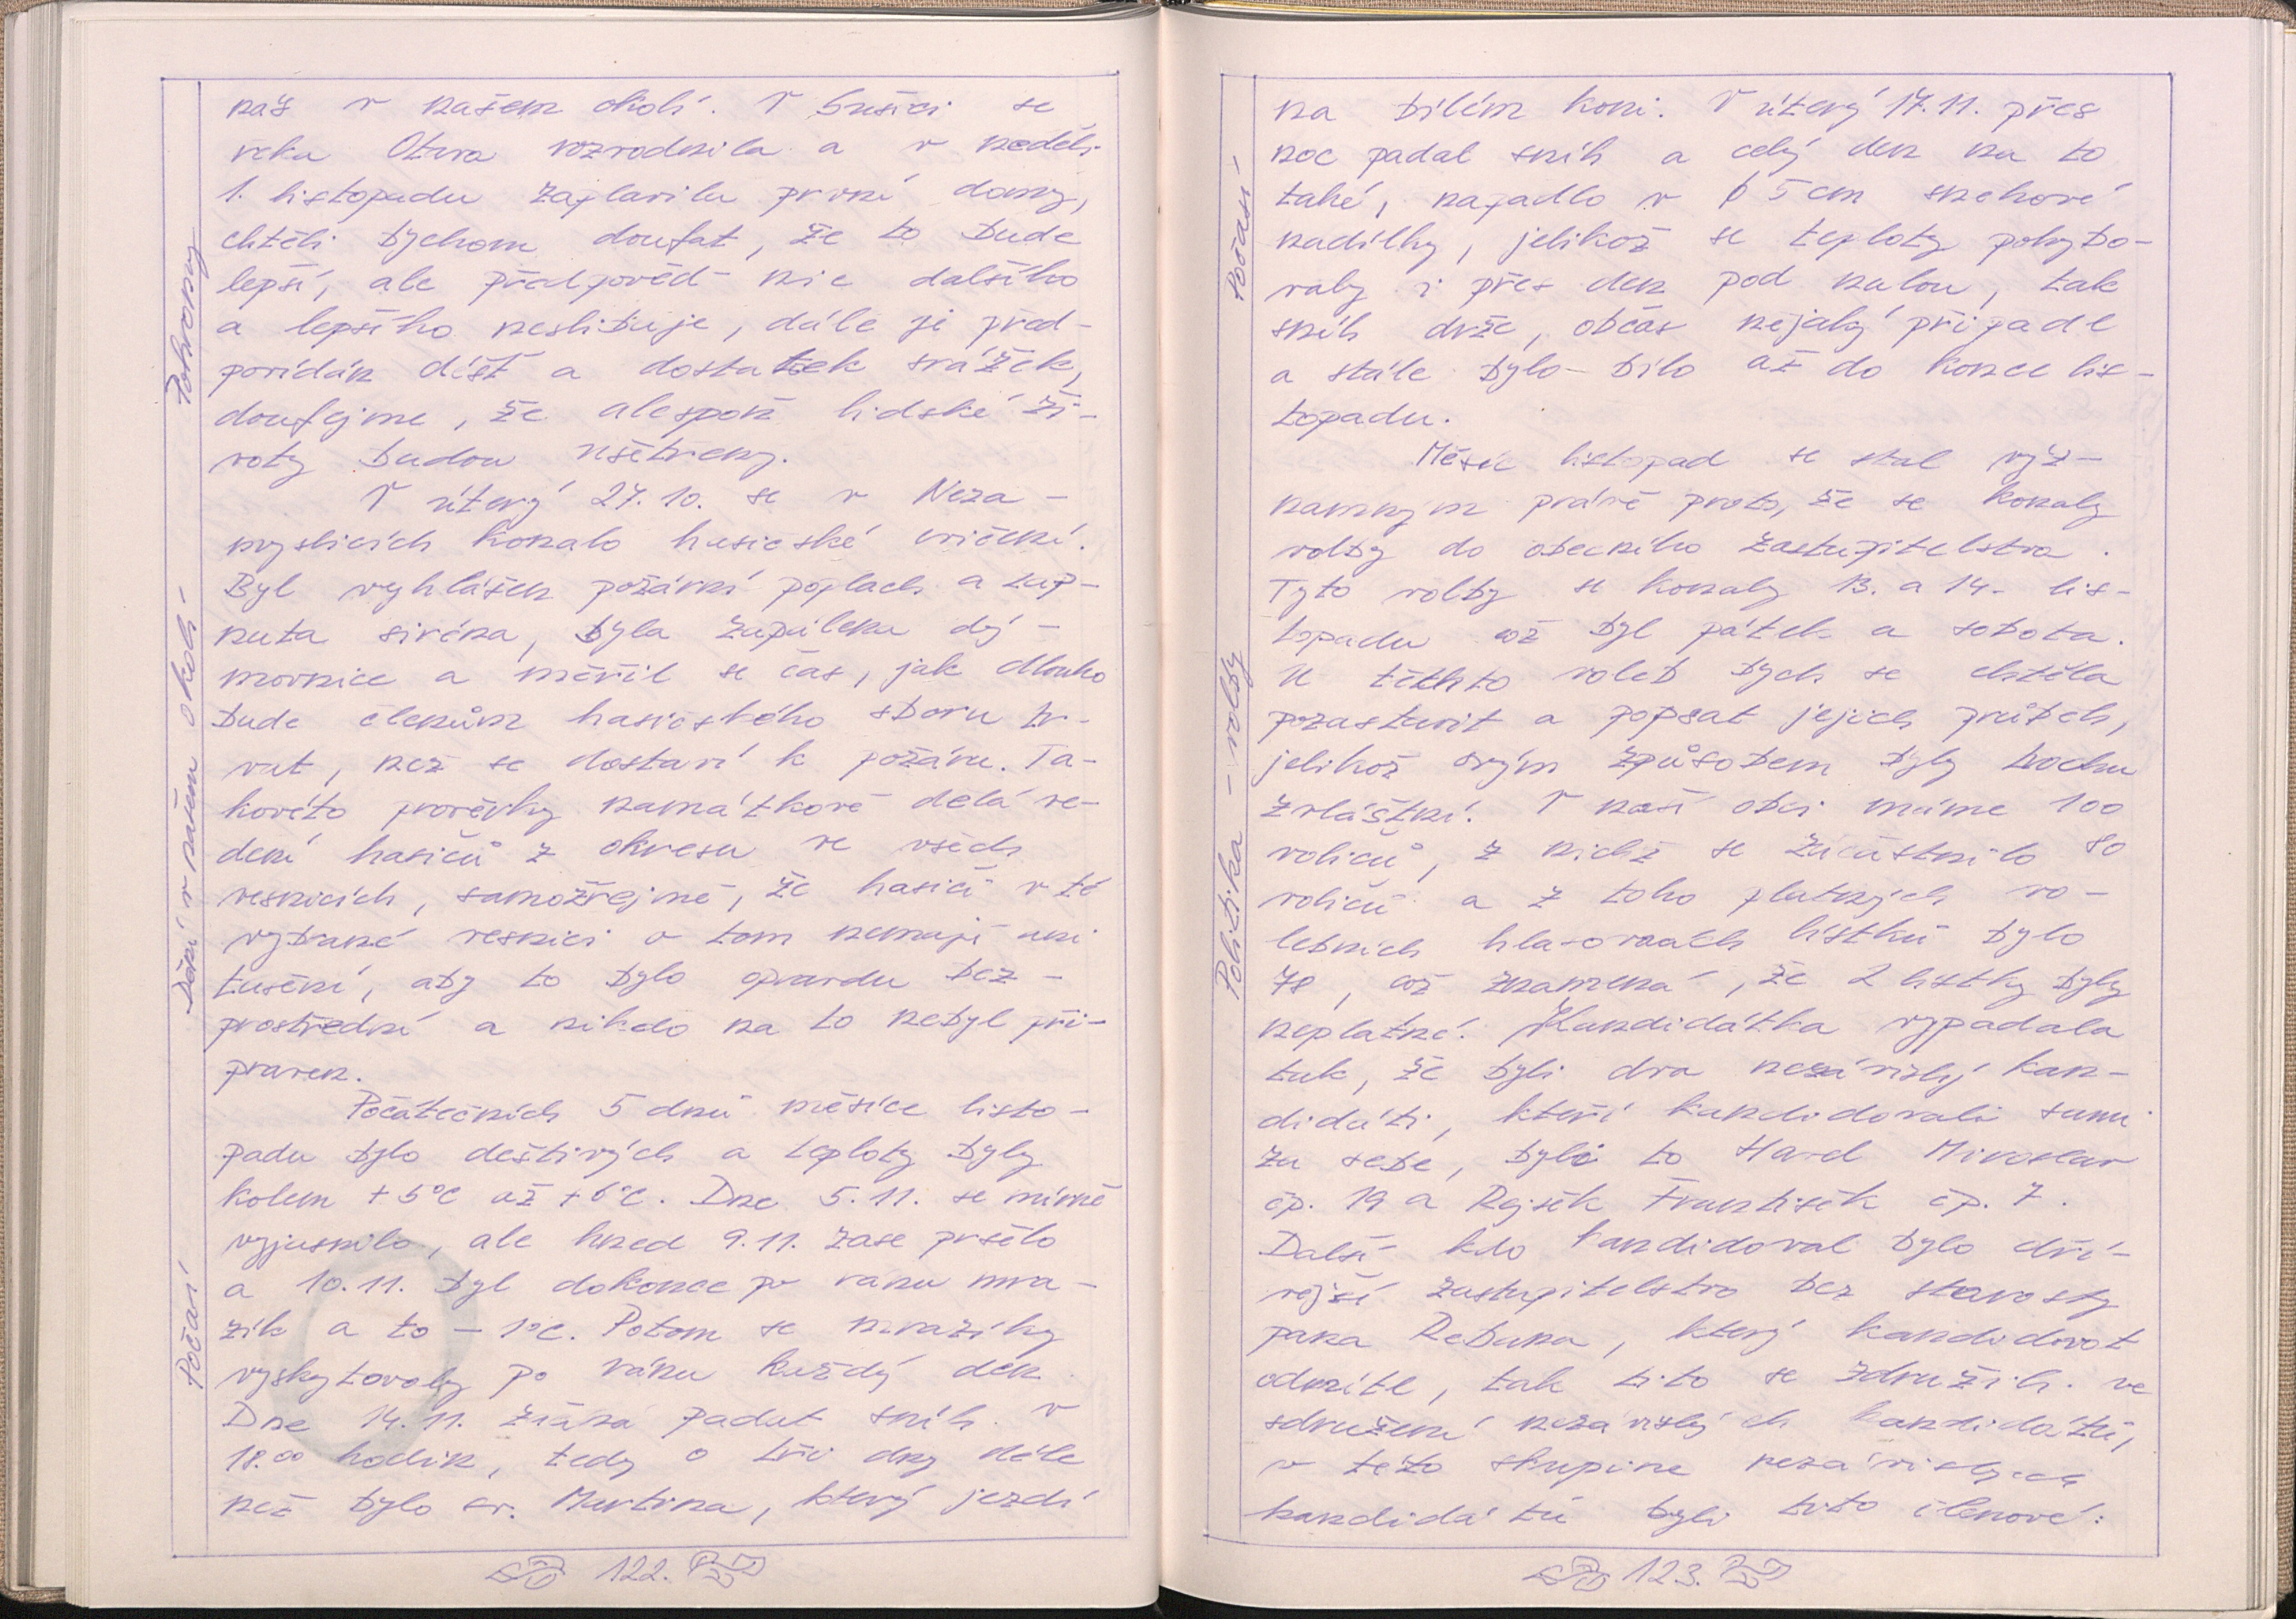 Pohromy
Dění v našem okolí -
Počasí
nás v našem okolí. V Sušici se
řeka Otava rozvodnila a v neděli
1. listopadu zaplavila první domy,
chtěli bychom doufat, že to bude
lepší, ale předpověď nic dalšího
a lepšího neslibuje, dále je před-
povídán déšť a dostatek srážek,
doufejme, že alespoň lidské ži-
voty budou ušetřeny.
V úterý 27.10. se v Neza-
myslicích konalo hasičské cvičení.
Byl vyhlášen požární poplach a zap-
nuta siréna, byla zapálena dý-
movnice a měřil se čas, jak dlouho
bude členům hasičského sboru tr-
vat, než se dostaví k požáru. Ta-
kovéto prověrky namátkově dělá ve-
dení hasičů z okresu ve všech
vesnicích, samozřejmě, že hasiči v té
vybrané vesnici o tom nemají ani
tušení, aby to bylo opravdu bez-
prostřední a nikdo na to nebyl při-
praven.
Počátečních 5 dnů měsíce listo-
padu bylo deštivých a teploty byly
kolem +5°C až +6°C. Dne 5.11. se mírně
vyjasnilo, ale hned 9.11. zase pršelo
a 10.11. byl dokonce po ránu mra-
zík a to -1°C. Potom se mrazíky
vyskytovaly po ránu každý den.
Dne 14.11. začna padat sníh v
18.00 hodin, tedy o tři dny déle
než bylo sv. Martina, který jezdí
122.
Počasí
Politika - volby
na bílém koni. V úterý 17.11. přes
noc padal sníh a celý den na to
také, napadlo v ϕ 5 cm snehové
nadílky, jelikož se teploty pohybo-
valy i přes den pod nulou, tak
sníh drže, občas nějaký připadl
a stále bylo bílo až do konce lis-
topadu.
Měsíc listopad se stal výz-
namným právě proto, že se konaly
volby do obecního zastupitelstva.
Tyto volby se konaly 13. a 14. lis-
topadu což byl pátek a sobota.
U těchto voleb bych se chtěla
pozastavit a popsat jejich průbeh,
jelikož svým způsobem byly trochu
zvláštní. V naší obci máme 100
voličů, z nichž se zúčástnilo 80
voličů a z toho platných vo-
lebních hlasovacích lístků bylo
78, což znamená, že 2 lístky byly
neplatné. Kandidátka vypadala
tak, že byli dva nezávislý kan-
didáti, kteří kandidovali sami
za sebe, byli to Havel Miroslav
čp. 19 a Rejsek František čp. 7.
Další kdo kandidoval bylo dří-
vejší zastupitelstvo bez starosty
pana Rebana, který kandidovat
odmítl, tak tito se združili ve
sdružení nezávislých kandidátů,
v této skupine nezávislých
kandidátů byli tito členové:
123.